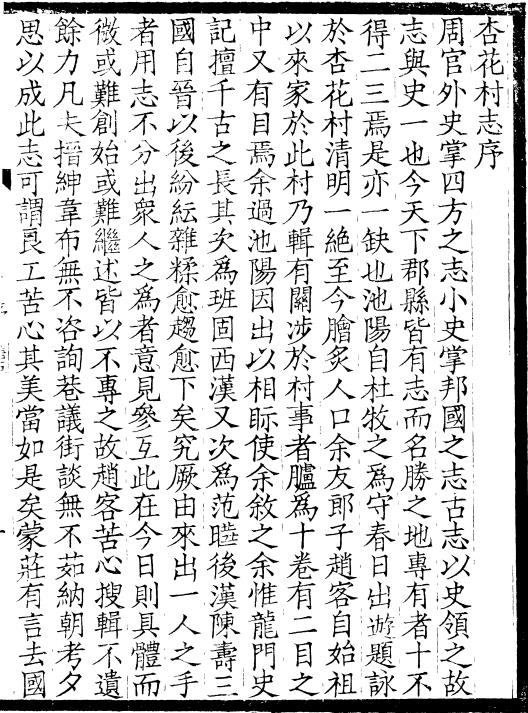 杏花村志序
周官外史掌四方之志小史掌邦國之志古志以史領之故
志與史一也今天下郡縣皆有志而名勝之地專有者十不
得二三焉是亦一缺也池陽自杜牧之為守春日出遊題詠
於杏花村清明一絶至今膾炙人口余友郎子趙客自始祖
以來家於此村乃輯有關涉於村事者臚為十卷有二目之
中又有目焉余過池陽因出以相眎使余敘之余惟龍門史
記擅千古之長其次為班固西漢又次為范曄後漢陳壽三
國自晉以後紛紜雜糅愈趨愈下矣究厥由來出一人之手
者用志不分出衆人之為者意見參互此在今日則具體而
微或難創始或難繼述皆以不專之故趙客苦心搜輯不遺
餘力凡夫搢紳韋布無不咨詢巷議街談無不茹納朝考夕
思以成此志可謂良工苦心其美當如是矣蒙莊有言去國